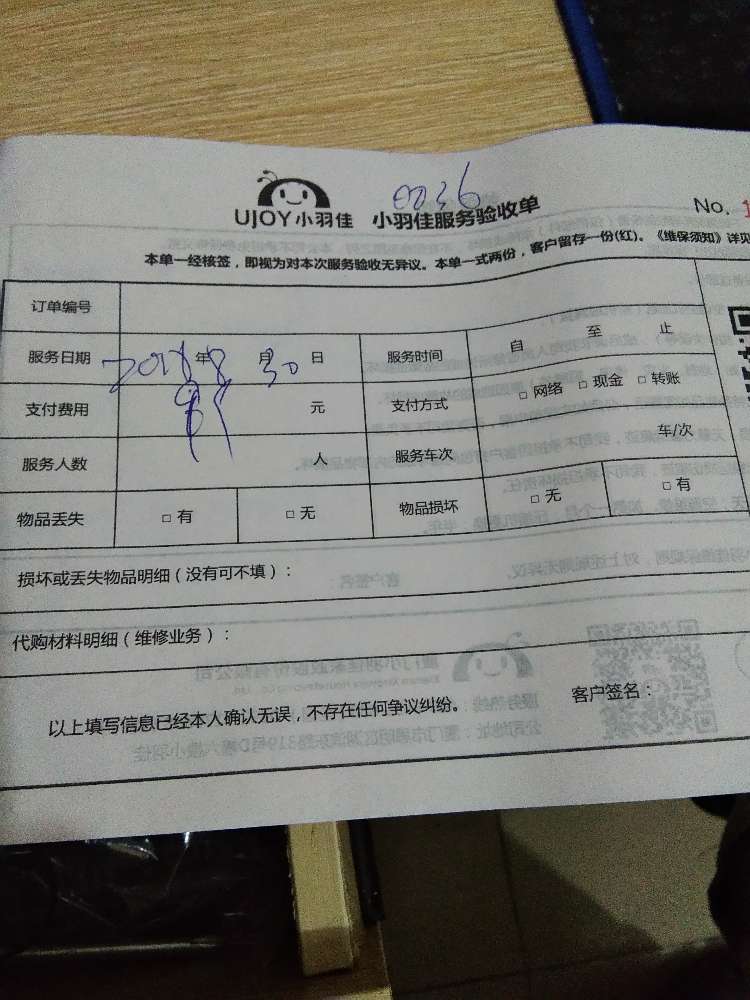 0036
UJOY小羽佳 小羽佳服务验收单 No.
本单一经核签，即视为对本次服务验收无异议。本单一式两份，客户留存一份(红)。《维保须知》详见
订单编号
服务日期 2018年8月30日 服务时间 自 至 止
支付费用 元 支付方式 □ 网络 □ 现金 □ 转账
服务人数 人 服务车次 车/次
物品丢失 □ 有 □ 无 物品损坏 □ 无 □ 有
损坏或丢失物品明细（没有可不填）：
代购材料明细（维修业务）：
以上填写信息已经本人确认无误，不存在任何争议纠纷。 客户签名：